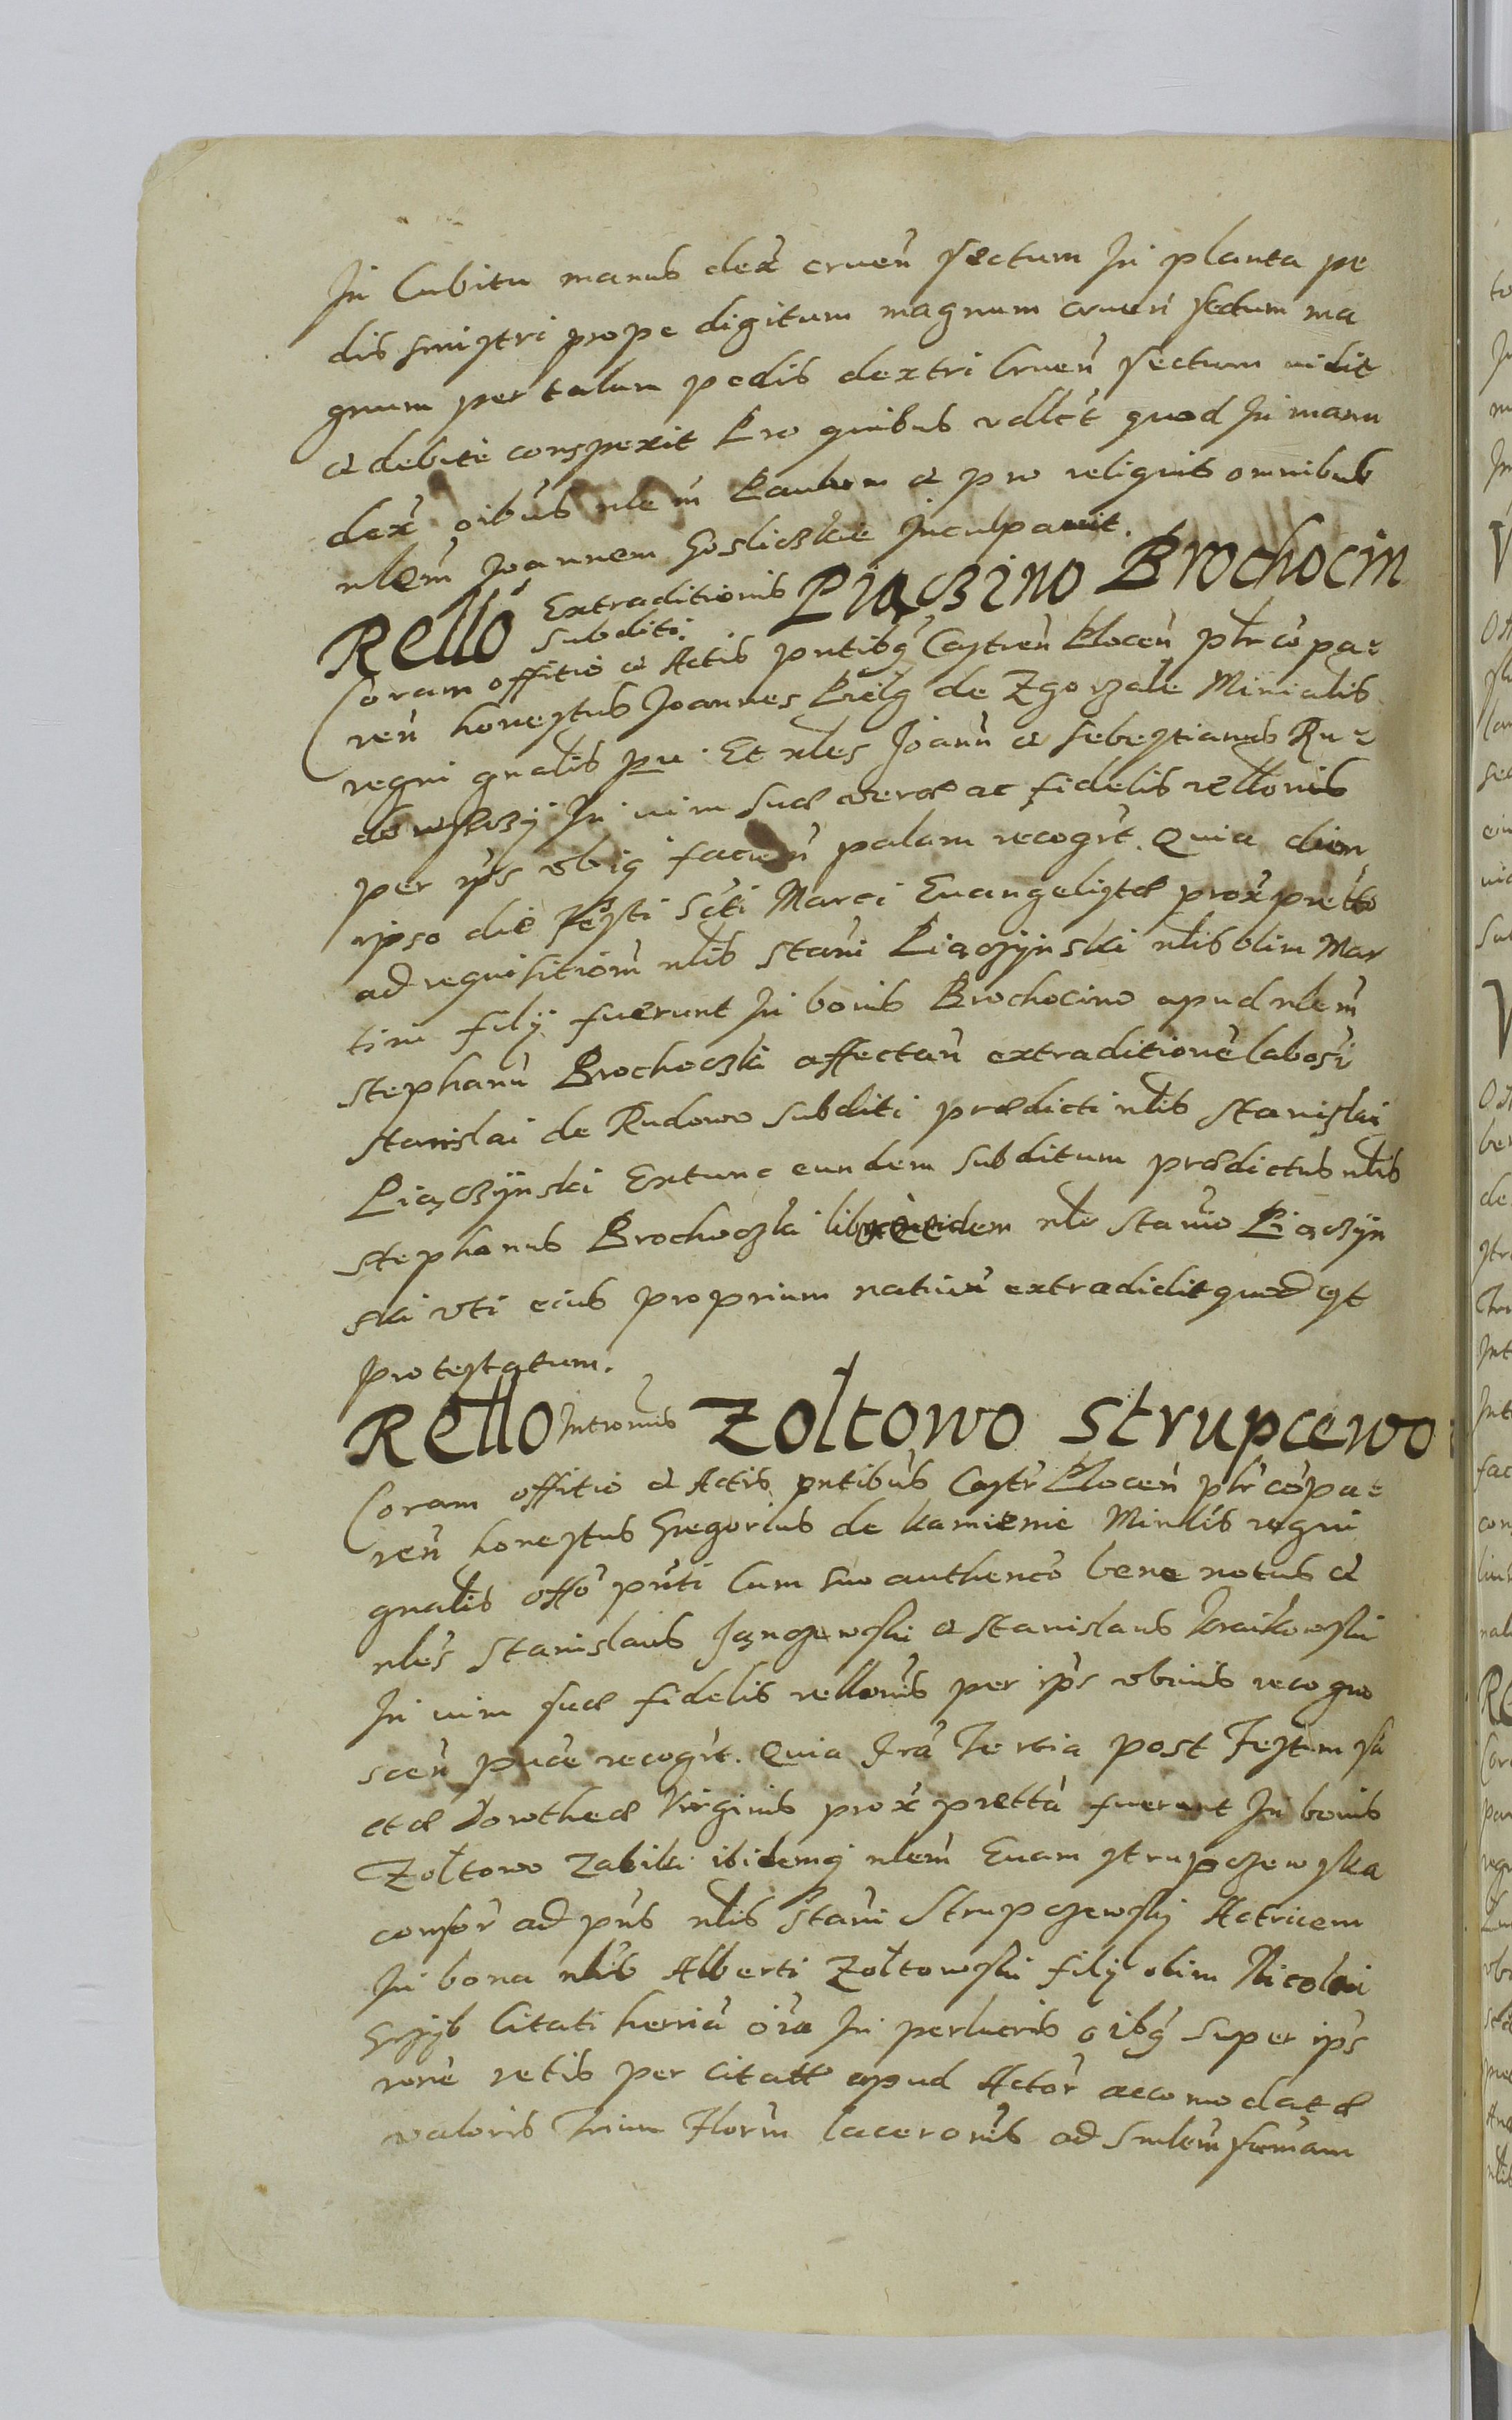 In Cubitu manus dex̃ cruen̄ sectum In planta pe
dis sinistri prope digitum magnum cruen̄ sectum ma
gnum per talum pedis dextri Cruen̄ sectum vidit
et debite conspexit Pro quibus vdlct quod In manu
dex̃ oibus nlem̄ Paulum et pro reliquis omnibus
nlem̄ Joannem Gosliczkie Inculpauit.
Rello Extraditionis Piączino Brochocin
Subditi.
Coram offitio et Actis pntibq̃ Castren̄ Plocen̄ plr̃ cõpa=
ren̄ honestus Joannes de Zgorzale Minialis
regni gnalis Et nles Joann̄ et Sebestianus Ru=
In vim suæ veræ ac fidelis rellonis
per ip̃s vbiq̃ palam recogt. Quia
ipso die Festi Scti Marci Euangelistæ prox̃ prett̃o
ad requisitiom̄ nlis Stani Piączÿnski nlis olim Mar
tini filÿ fuerunt In bonis Brochocino apud nlem̄
Stephanū Brochoczki affectan̄ extraditionē labosi
Stanislai de Rudowo Subditi prædicti nlis Stanislai
Piączÿnski Extunc eundem Subditum prædictus nlis
Stephanus Brochoczki eidem nle Stanio Piączÿn
ski vti eius proprium natiuū extradidit quod est
protestatum.
Rello Intromis Zoltowo Strupcewo
Coram offitio et Actis pntibus Castr̃ Plocen̄ plr̃ cõpa=
ren̄ honestus Gregorius de Kamienie Minlis regni
gnalis offõ pnti Cum suo authenco bene notus et
nles Stanislaus Janczewski et Stanislaus Kraikowski
In vim suæ fidelis rellonis per ip̃s vbiuis recogno
scen̄ recogt. Quia Fra Tertia post Festum Sā
ctæ Dorotheæ Virginis prox̃ prettã fuerunt In bonis
Zołtowo Zabiki ibidemq̃ nlem̄ Euam Strupczewska
consor̃ ad pn̄s nlis Stani Strupczewskÿ Actricem
In bona nlis Alberti Zołtowski filÿ olim Nicolai
Grzÿb Citati in oīa In perlucris oibq̃ super ip̃s
rone retis per Citatt apud Actor̃ accomodatæ
valoris Trium Floru̅ laceronis ad Smlem̄ fumam